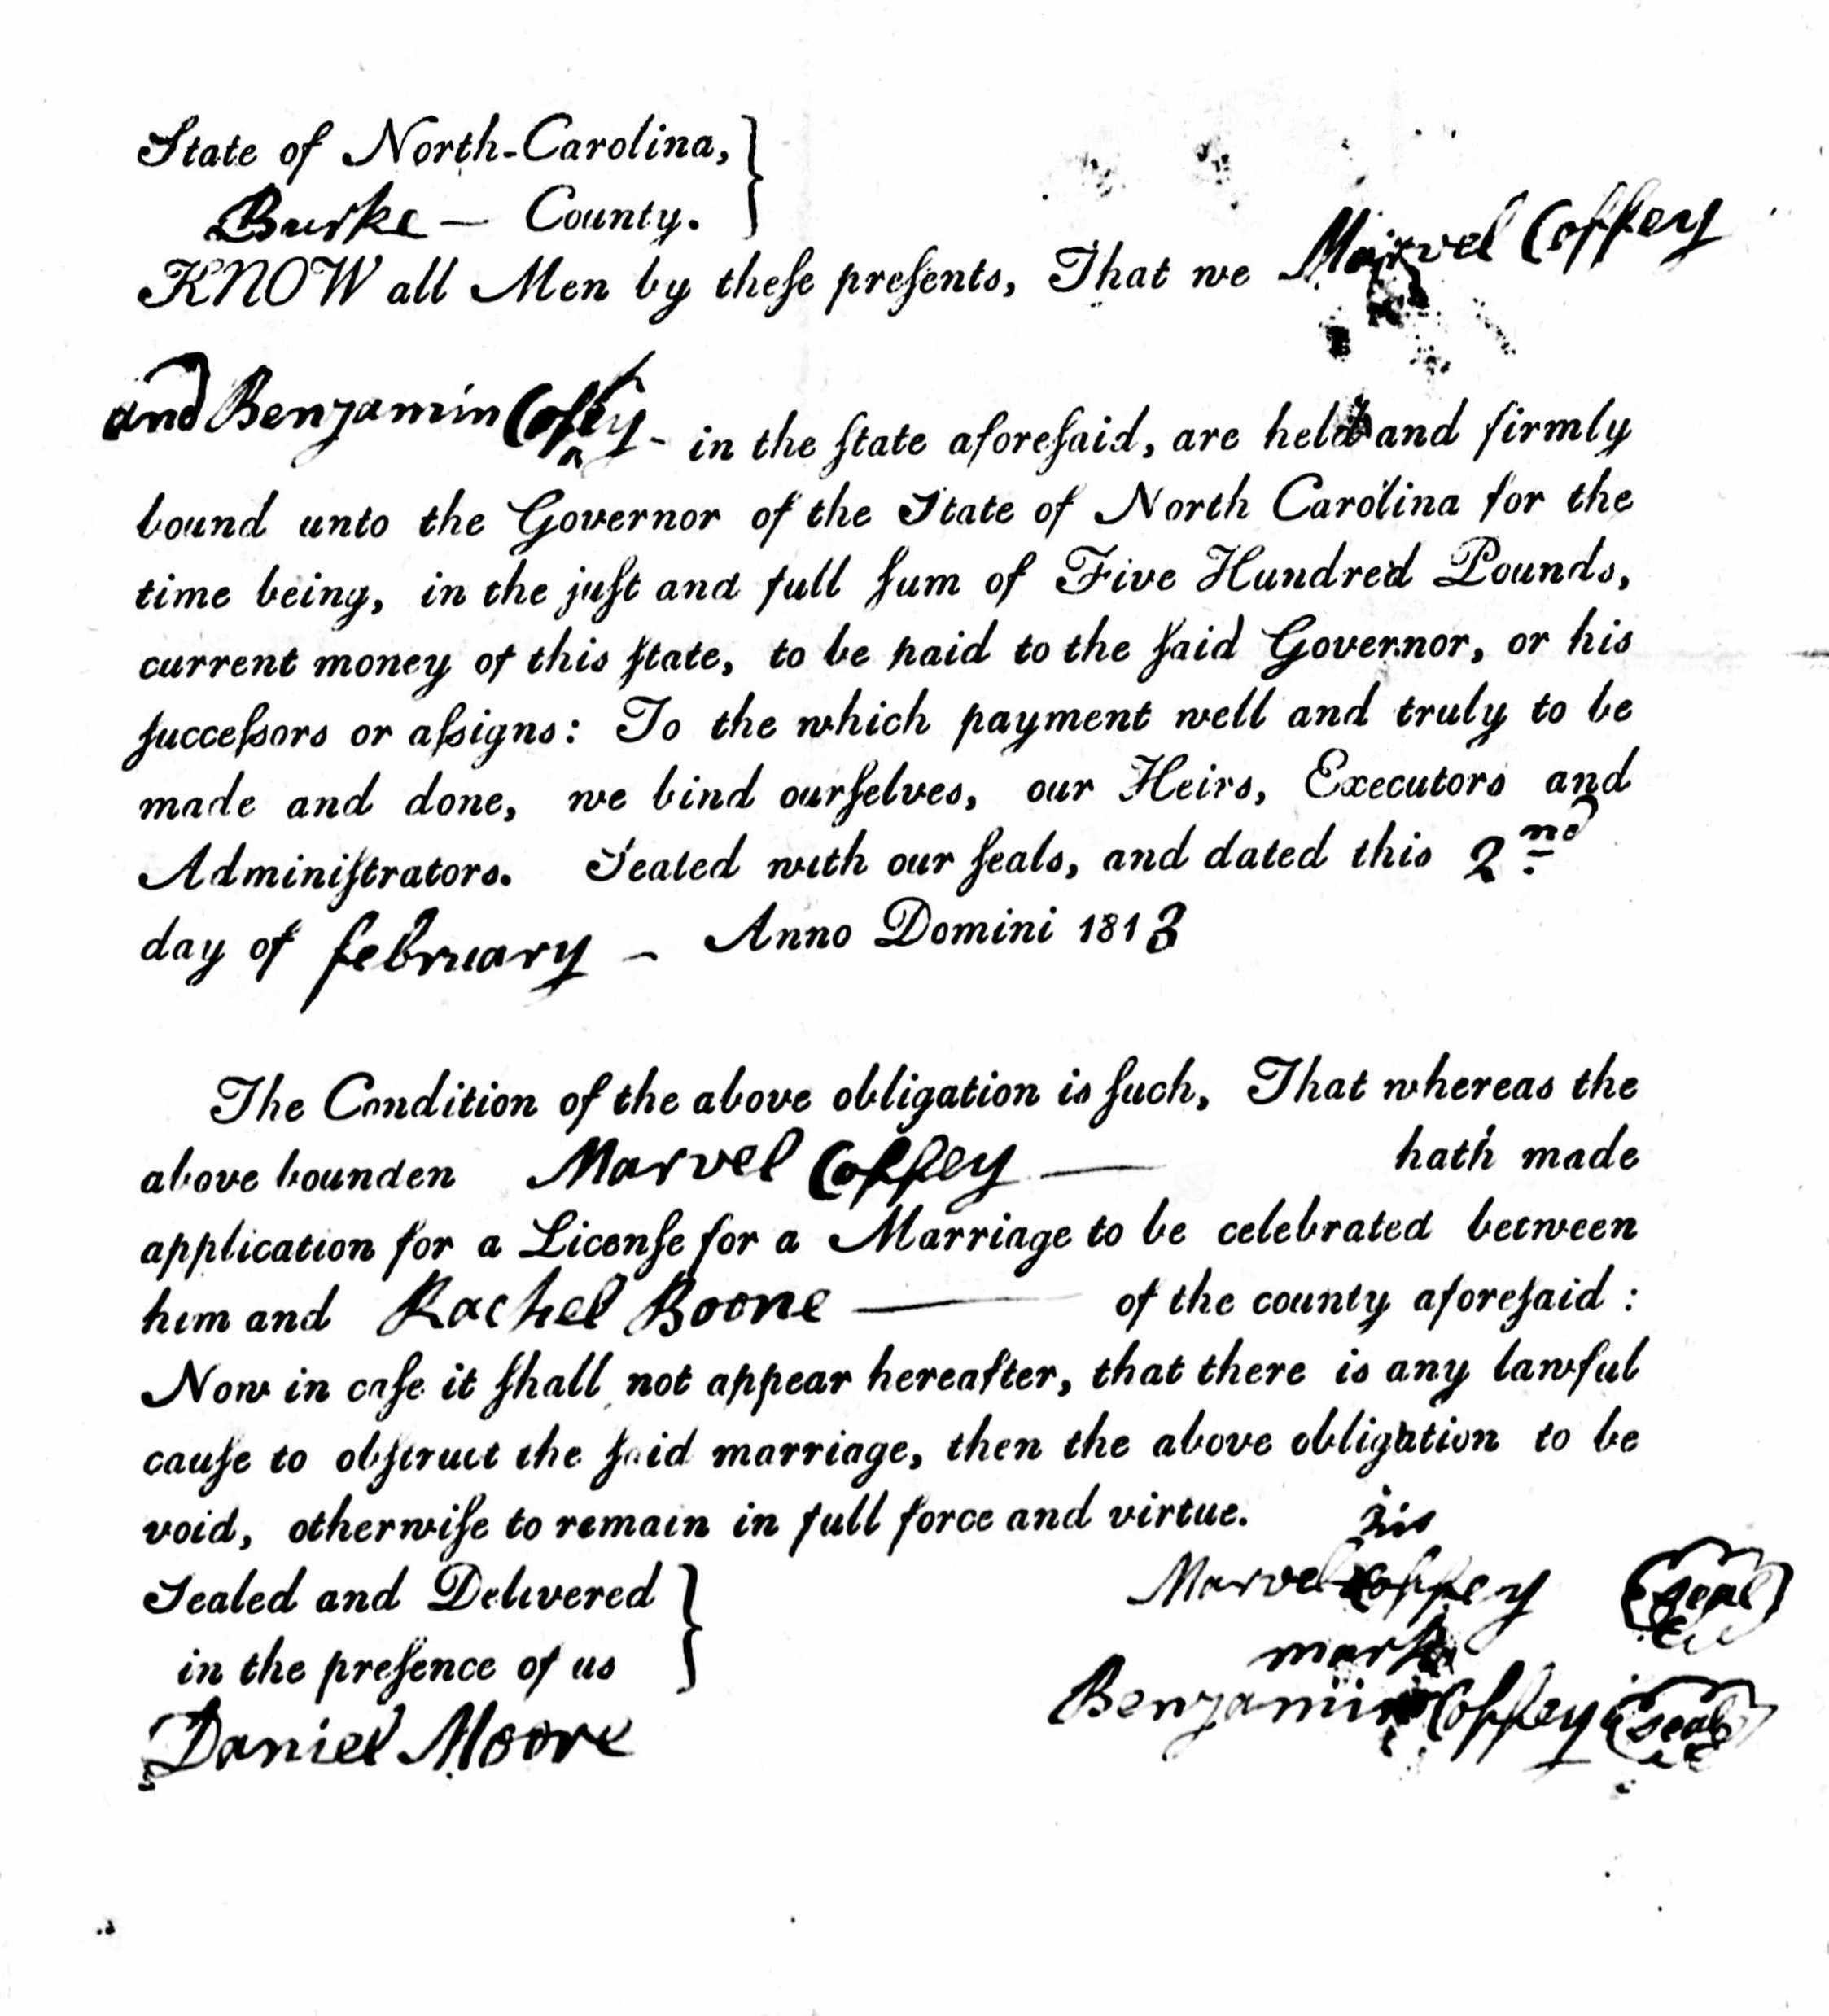 State of North-Carolina,
Burke — County.
KNOW all Men by theſe preſents, That we Marvel Coffey
and Benjamin Coffey - in the ſtate aforeſaid, are held and firmly
bound unto the Governor of the State of North Carolina for the
time being, in the juſt and full ſum of Five Hundred Pounds,
current money of this ſtate, to be paid to the ſaid Governor, or his
ſucceſsors or aſsigns: To the which payment well and truly to be
made and done, we bind ourſelves, our Heirs, Executors and
Adminiſtrators. Sealed with our ſeals, and dated this 2nd
day of february - Anno Domini 1813
The Condition of the above obligation is ſuch, That whereas the
above bounden Marvel Coffey — hath made
application for a Licenſe for a Marriage to be celebrated between
him and Rachel Boone — of the county aforeſaid :
Now in caſe it ſhall not appear hereafter, that there is any lawful
cauſe to obſtruct the ſaid marriage, then the above obligation to be
void, otherwiſe to remain in full force and virtue.
his
Marvel x Coffey seal
mark
Sealed and Delivered
in the preſence of us
Benjamin Coffey seal
Daniel Moore